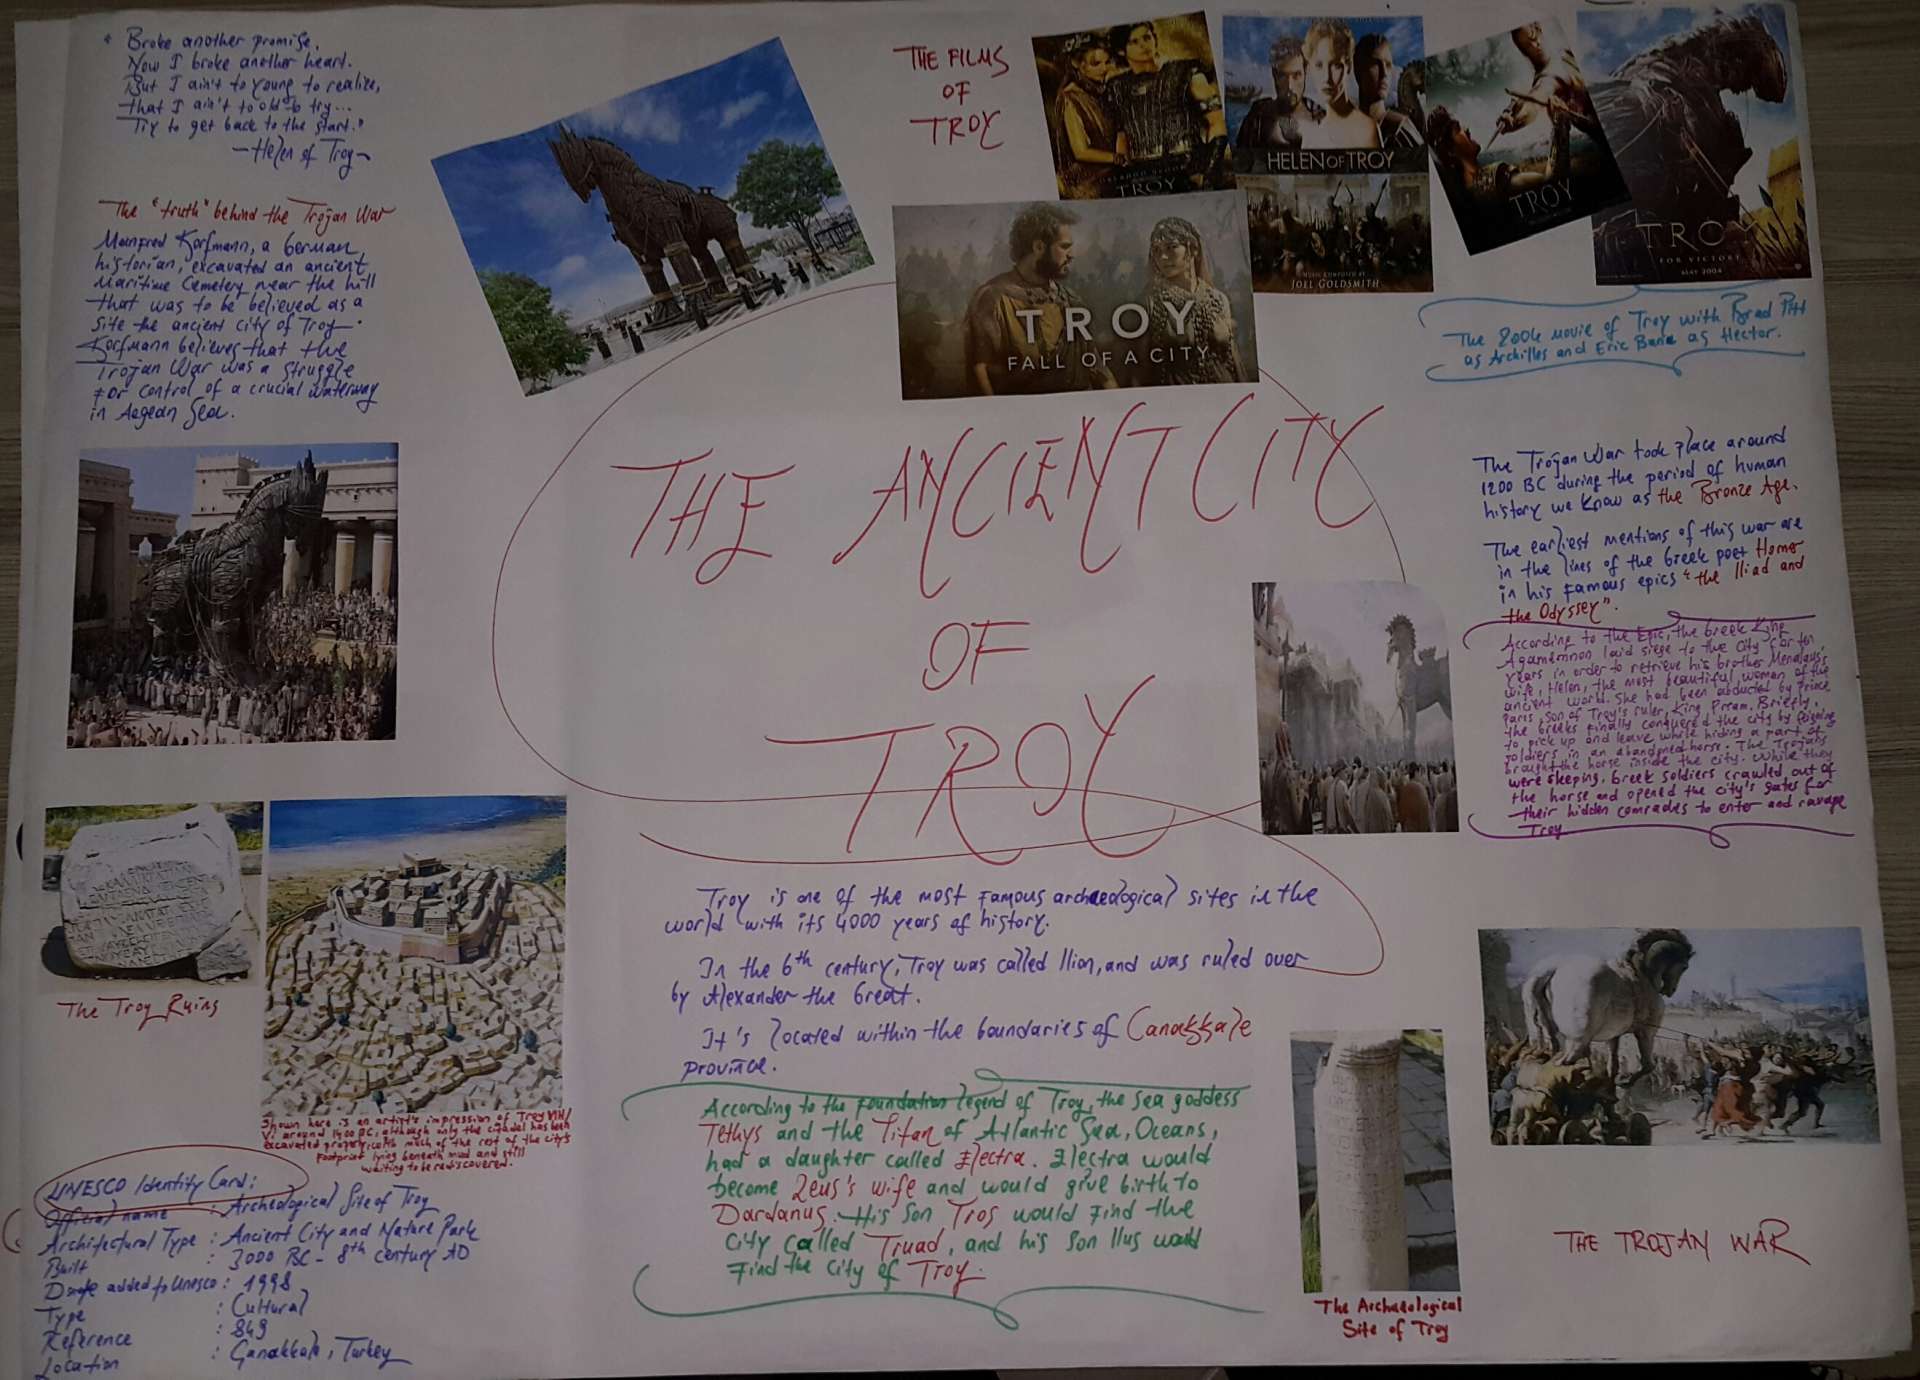 " Broke another promise.
Now I broke another heart.
But I ain't to young to realize,
that I ain't to old to try...
Try to get back to the start."
-Helen of Troy-
The "truth" behind the Trojan War
Manfred Korfmann, a German
historian, excavated an ancient
Maritime Cemetery near the hill
that was to be believed as a
site the ancient city of Troy.
Korfmann believes that the
Trojan War was a struggle
For control of a crucial waterway
in Aegean Sea.
THE FILMS
OF
TROY
TROY
HELEN OF TROY
MUSIC COMPOSED BY
JOEL GOLDSMITH
TROY
TROY
FOR VICTORY
MAY 2004
TROY
FALL OF A CITY
The 2004 movie of Troy with Brad Pitt
as Archilles and Eric Bana as Hector.
THE ANCIENT CITY
OF
TROY
The Trojan War took place around
1200 BC during the period of human
history we know as the Bronze Age.
The earliest mentions of this war are
in the lines of the Greek poet Homer
in his famous epics "the Iliad and
the Odyssey".
According to the Epic, the Greek King
Agamemnon laid siege to the City for ten
years in order to retrieve his brother Menalaus's
wife, Helen, the most beautiful woman of the
ancient world. She had been abducted by prince
Paris, son of Troy's ruler, King Pream. Briefly,
the Greeks finally conquered the city by feigning
to pick up and leave while hiding a part of
soldiers in an abandoned horse. The Trojans
brought the horse inside the city. While they
were sleeping, Greek soldiers crawled out of
the horse and opened the city's gates for
their hidden comrades to enter and ravage
Troy.
Troy is one of the most famous archaeological sites in the
world with its 4000 years of history.
In the 6th century, Troy was called Ilion, and was ruled over
by Alexander the Great.
It's located within the boundaries of Canakkale
province.
According to the foundation legend of Troy, the sea goddess
Tethys and the Titan of Atlantic Sea, Oceans,
had a daughter called Electra. Electra would
become Zeus's wife and would give birth to
Dardanus. His son Tros would find the
city called Truad, and his son Ilus would
find the city of Troy.
The Troy Ruins
Shown here is an artist's impression of Troy VIH/
VI around 1400 BC, although only the citadel has been
excavated properly, with much of the rest of the city's
footprint lying beneath mud and still
waiting to be rediscovered.
UNESCO Identity Card:
Official name : Archeological Site of Troy
Architectural Type : Ancient City and Nature Park
Built : 3000 BC - 8th century AD
Date added to Unesco : 1998
Type : Cultural
Reference : 849
Location : Çanakkale, Turkey
The Archaeological
Site of Troy
THE TROJAN WAR